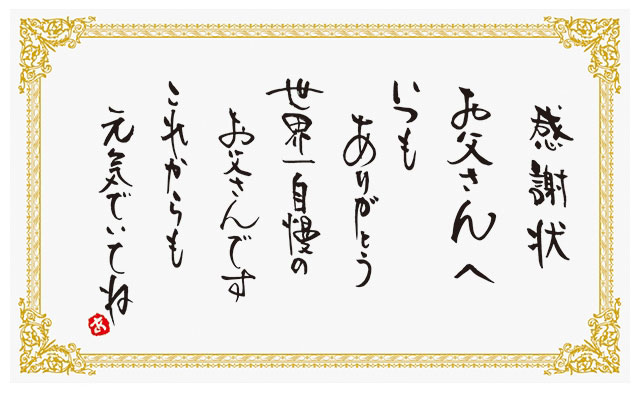 感謝状
お父さんへ
いつも
ありがとう
世界一自慢の
お父さんです
これからも
元気でいてね